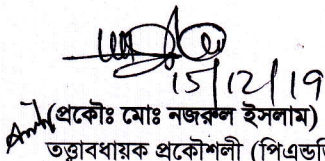 15/12/19
(প্রকৌঃ মোঃ নজরুল ইসলাম)
তত্ত্বাবধায়ক প্রকৌশলী (পিএন্ডডি